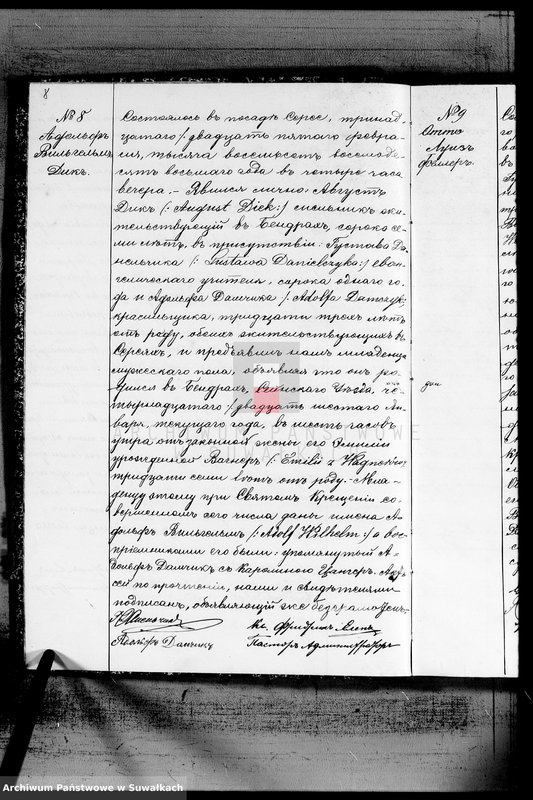 8
№ 8
Адольфъ
Вильгельмъ
Дикъ.
Состоялось въ посадѣ Серее, тринад-
цатаго /: двадцать пятаго февра-
ля, тысяча восемьсотъ восемьде-
сятъ восьмаго года въ четыре часа
вечера. - Явился лично: Августъ
Дикъ /: August Diek :/ жи-
тельствующій въ Бендрахъ, сорока се-
ми лѣтъ, въ присутствіи: Густава Да-
нельчика /: Gustawa Danielczyka :/ еван-
гелическаго учителя, сорока одного го-
да и Адольфа Дамчика /: Adolfa Damczyk
красильщика, тридцати трехъ лѣтъ
отъ роду, обоихъ жительствующихъ въ
Сереяхъ, и предъявилъ намъ младенца
мужескаго пола, объявляя что онъ ро-
дился въ Бендрахъ, Сейнскаго Уѣзда, че-
тырнадцатаго /: двадцать шестаго Ян-
варя текущаго года, въ шесть часовъ
утра отъ законной жены его Эмиліи
урожденной Вагнеръ /: Emilii z Wagnerów
тридцати семи лѣтъ отъ роду. - Мла-
денцу этому при Святомъ Крещеніи со-
вершенномъ сего числа даны имена А-
дольфъ Вильгельмъ /: Adolf Wilhelm :/ а вос-
пріемниками его были: упомянутый А-
дольфъ Дамчикъ съ Каролиною Цангеръ. Актъ
сей по прочтеніи, нами и свидѣтелями
подписанъ, объявляющій же безграмотенъ.
Адольфъ Дамчикъ
Кс. Фридрихъ
Пасторъ Администраторъ
№ 9
Отто
Луиз
дан
Archiwum Państwowe w Suwałkach